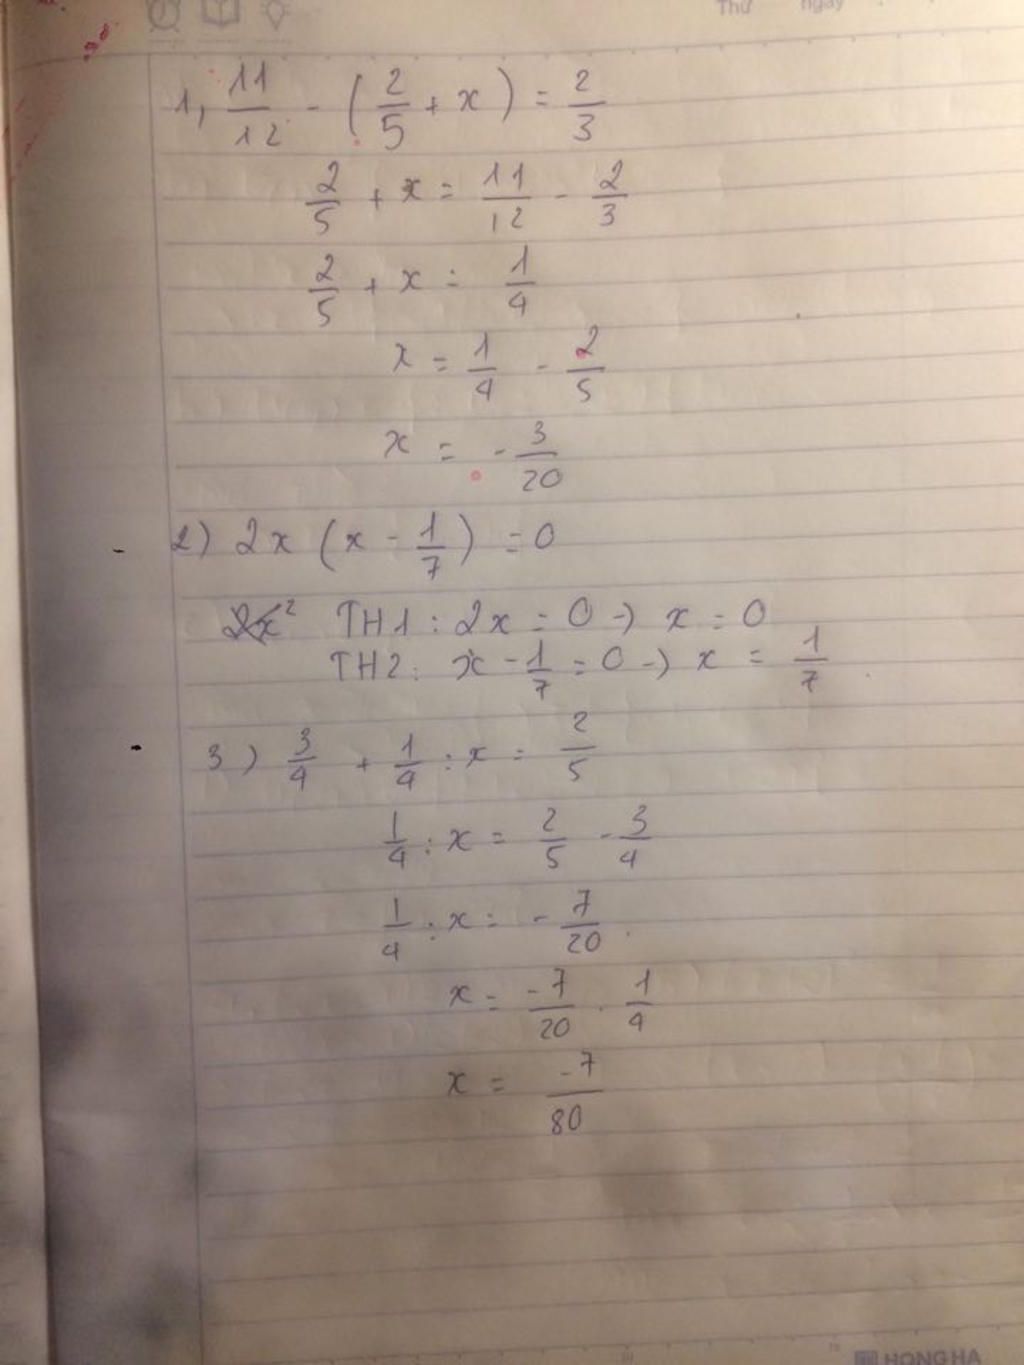 Thứ ngày
1, 11/12 - (2/5 + x) = 2/3
2/5 + x = 11/12 - 2/3
2/5 + x = 1/4
x = 1/4 - 2/5
x = - 3/20
2) 2x (x - 1/7) = 0
TH1 : 2x = 0 → x = 0
TH2: x - 1/7 = 0 → x = 1/7
3) 3/4 + 1/4 : x = 2/5
1/4 : x = 2/5 - 3/4
1/4 : x = - 7/20
x = -7/20 . 1/4
x = -7/80
HONG HA